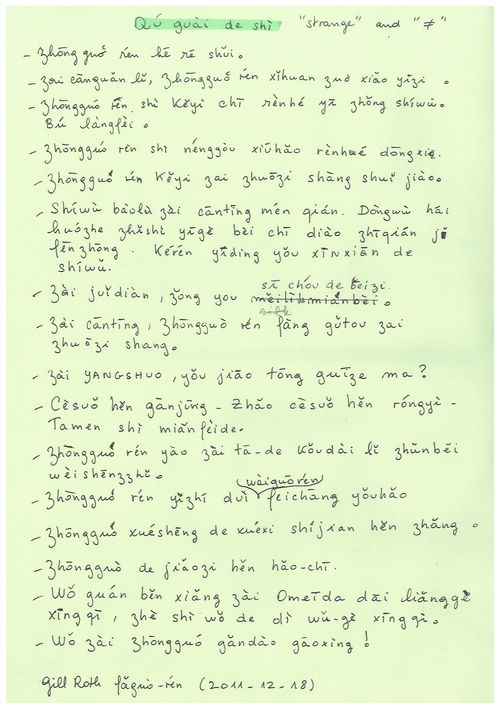 Qí guài de shì "strange" and "≠"
- Zhōngguó rén hē rè shuǐ.
- zai cānguǎn lǐ, Zhōngguó rén xǐhuan zuò xiǎo yǐzi .
- Zhōngguó rén shì kěyi chī rènhé yī zhǒng shíwù.
Bú làngfèi.
- Zhōngguó rén shì nénggòu xiūhǎo rènhé dōngxi.
- Zhōngguó rén kěyi zai zhuōzi shàng shuì jiào.
- Shíwù bàolù zài cāntīng mén qián. Dòngwù hái
huózhe zhǐshì yīgè bèi chī diào zhīqián jǐ
fēnzhōng. Kèrén yīding yǒu xīnxiān de
shíwù.
sī chóu de bèizi
- Zài jiǔdiàn, zǒng you měilì mián bèi.
silk
- Zài cāntīng, Zhōngguó rén fàng gǔtou zai
zhuōzi shang.
- Zài YANGSHUO, yǒu jiāo tōng guīze ma?
- Cèsuǒ hěn gānjīng - Zhǎo cèsuǒ hěn róngyì -
Tamen shì miǎnfèide.
- Zhōngguó rén yào zài tā-de kǒudài lǐ zhǔnbèi
wèishēngzhǐ.
wàiguórén
- Zhōngguó rén yīzhí duì fēicháng yǒuhǎo
- Zhōngguó xuéshēng de xuéxí shíjian hěn zhǎng.
- Zhōngguó de jiǎozi hěn hǎo-chī.
- Wǒ guán běn xiǎng zài Omeida dāi liǎnggè
xīngqī, zhè shì wǒ de dì wǔ-gè xīngqi.
- Wǒ zài Zhōngguó gǎndào gāoxìng!
Gill Roth fǎguó-rén (2011-12-18)